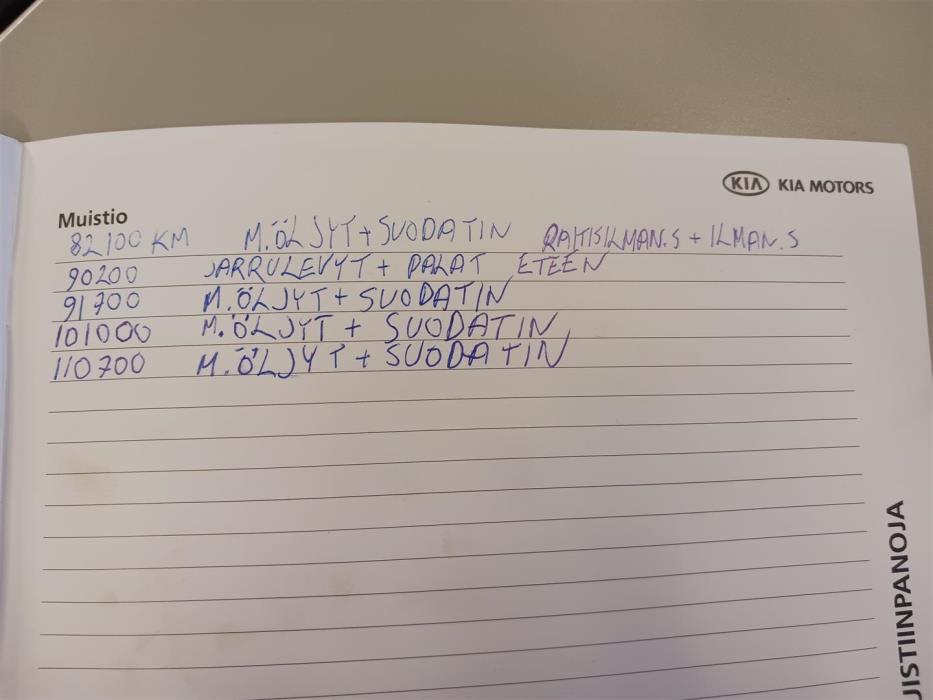 KIA KIA MOTORS
Muistio
82100 KM M.ÖLJYT+SUODATIN RAITISILMAN.S + ILMAN.S
90200 JARRULEVYT + PALAT ETEEN
91700 M.ÖLJYT+SUODATIN
101000 M.ÖLJYT + SUODATIN
110700 M.ÖLJYT + SUODATIN
UISTIINPANOJA